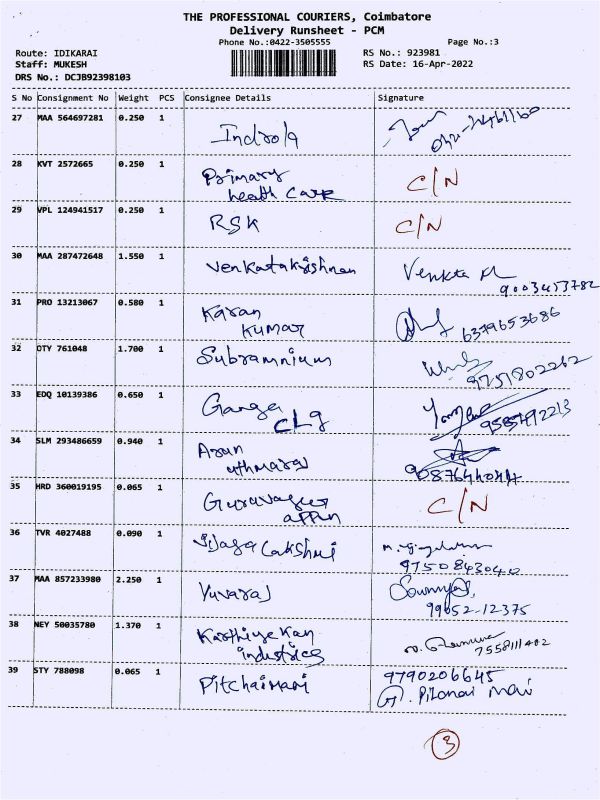 THE PROFESSIONAL COURIERS, Coimbatore
Delivery Runsheet - PCM
Phone No.:0422-3505555 Page No.:3
Route: IDIKARAI RS No.: 923981
Staff: MUKESH RS Date: 16-Apr-2022
DRS No.: DCJB92398103
S No Consignment No Weight PCS Consignee Details Signature
27 MAA 564697281 0.250 1 Indrola
28 KVT 2572665 0.250 1 Primary C/N
heath Care
29 VPL 124941517 0.250 1 RSK C/N
30 MAA 287472648 1.550 1 Venkatakrishnan Venkta
9003453782
31 PRO 13213067 0.580 1 Karan
Kumar 6379653686
32 OTY 761048 1.700 1 Subramnium
9751802262
33 EDQ 10139386 0.650 1 Ganga
CLg
34 SLM 293486659 0.940 1 Arun
uthmaraj
35 HRD 360019195 0.065 1 Guruvayur C/N
appan
36 TVR 4027488 0.090 1 Vijaya Lakshmi
9750843040
37 MAA 857233980 2.250 1 Yuvaraj Sowmya
99652-12375
38 NEY 50035780 1.370 1 Karthiyekan
industries 7558111402
39 STY 788098 0.065 1 Pitchaimani 9790206645
3